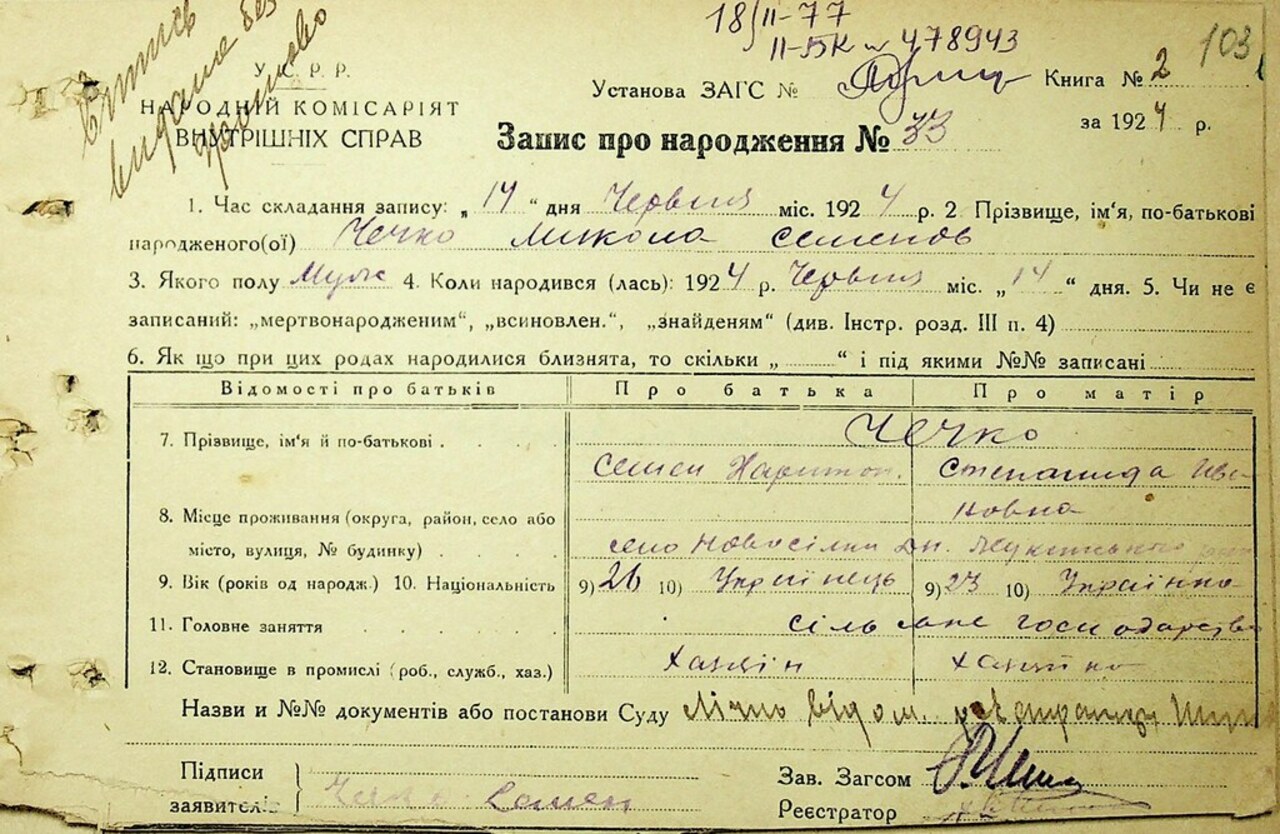 18/II-77
II-БК № 478943
103
У. С. Р. Р.
НАРОДНІЙ КОМІСАРІЯТ
ВНУТРІШНІХ СПРАВ
Установа ЗАГС №
Книга № 2
Запис про народження № 33
за 1924 р.
1. Час складання запису: „ 14 “ дня Червня міс. 1924 р. 2. Прізвище, ім‘я, по-батькові
народженого(ої) Чечко Микола Семенов
3. Якого полу Муж 4. Коли народився (лась): 1924 р. Червня міс. „ 14 “ дня. 5. Чи не є
записаний: „мертвонародженим“, „всиновлен.“, „знайденям“ (див. Інстр. розд. III п. 4)
6. Як що при цих родах народилися близнята, то скільки „ “ і під якими №№ записані
Відомості про батьків Про батька Про матір
7. Прізвище, ім‘я й по-батькові Чечко
Семен Харитон. Степанида Ива
новна
8. Місце проживання (округа, район, село або
місто, вулиця, № будинку) село Новосілки
9. Вік (років од народж.) 10. Національність 9) 26 10) Українець 9) 23 10) Українка
11. Головне заняття сільське господарство
12. Становище в промислі (роб., служб., хаз.) Хазяїн Хазяйка
Назви и №№ документів або постанови Суду Лично відом.
Підписи
заявителів Чечко Семен
Зав. Загсом
Реєстратор